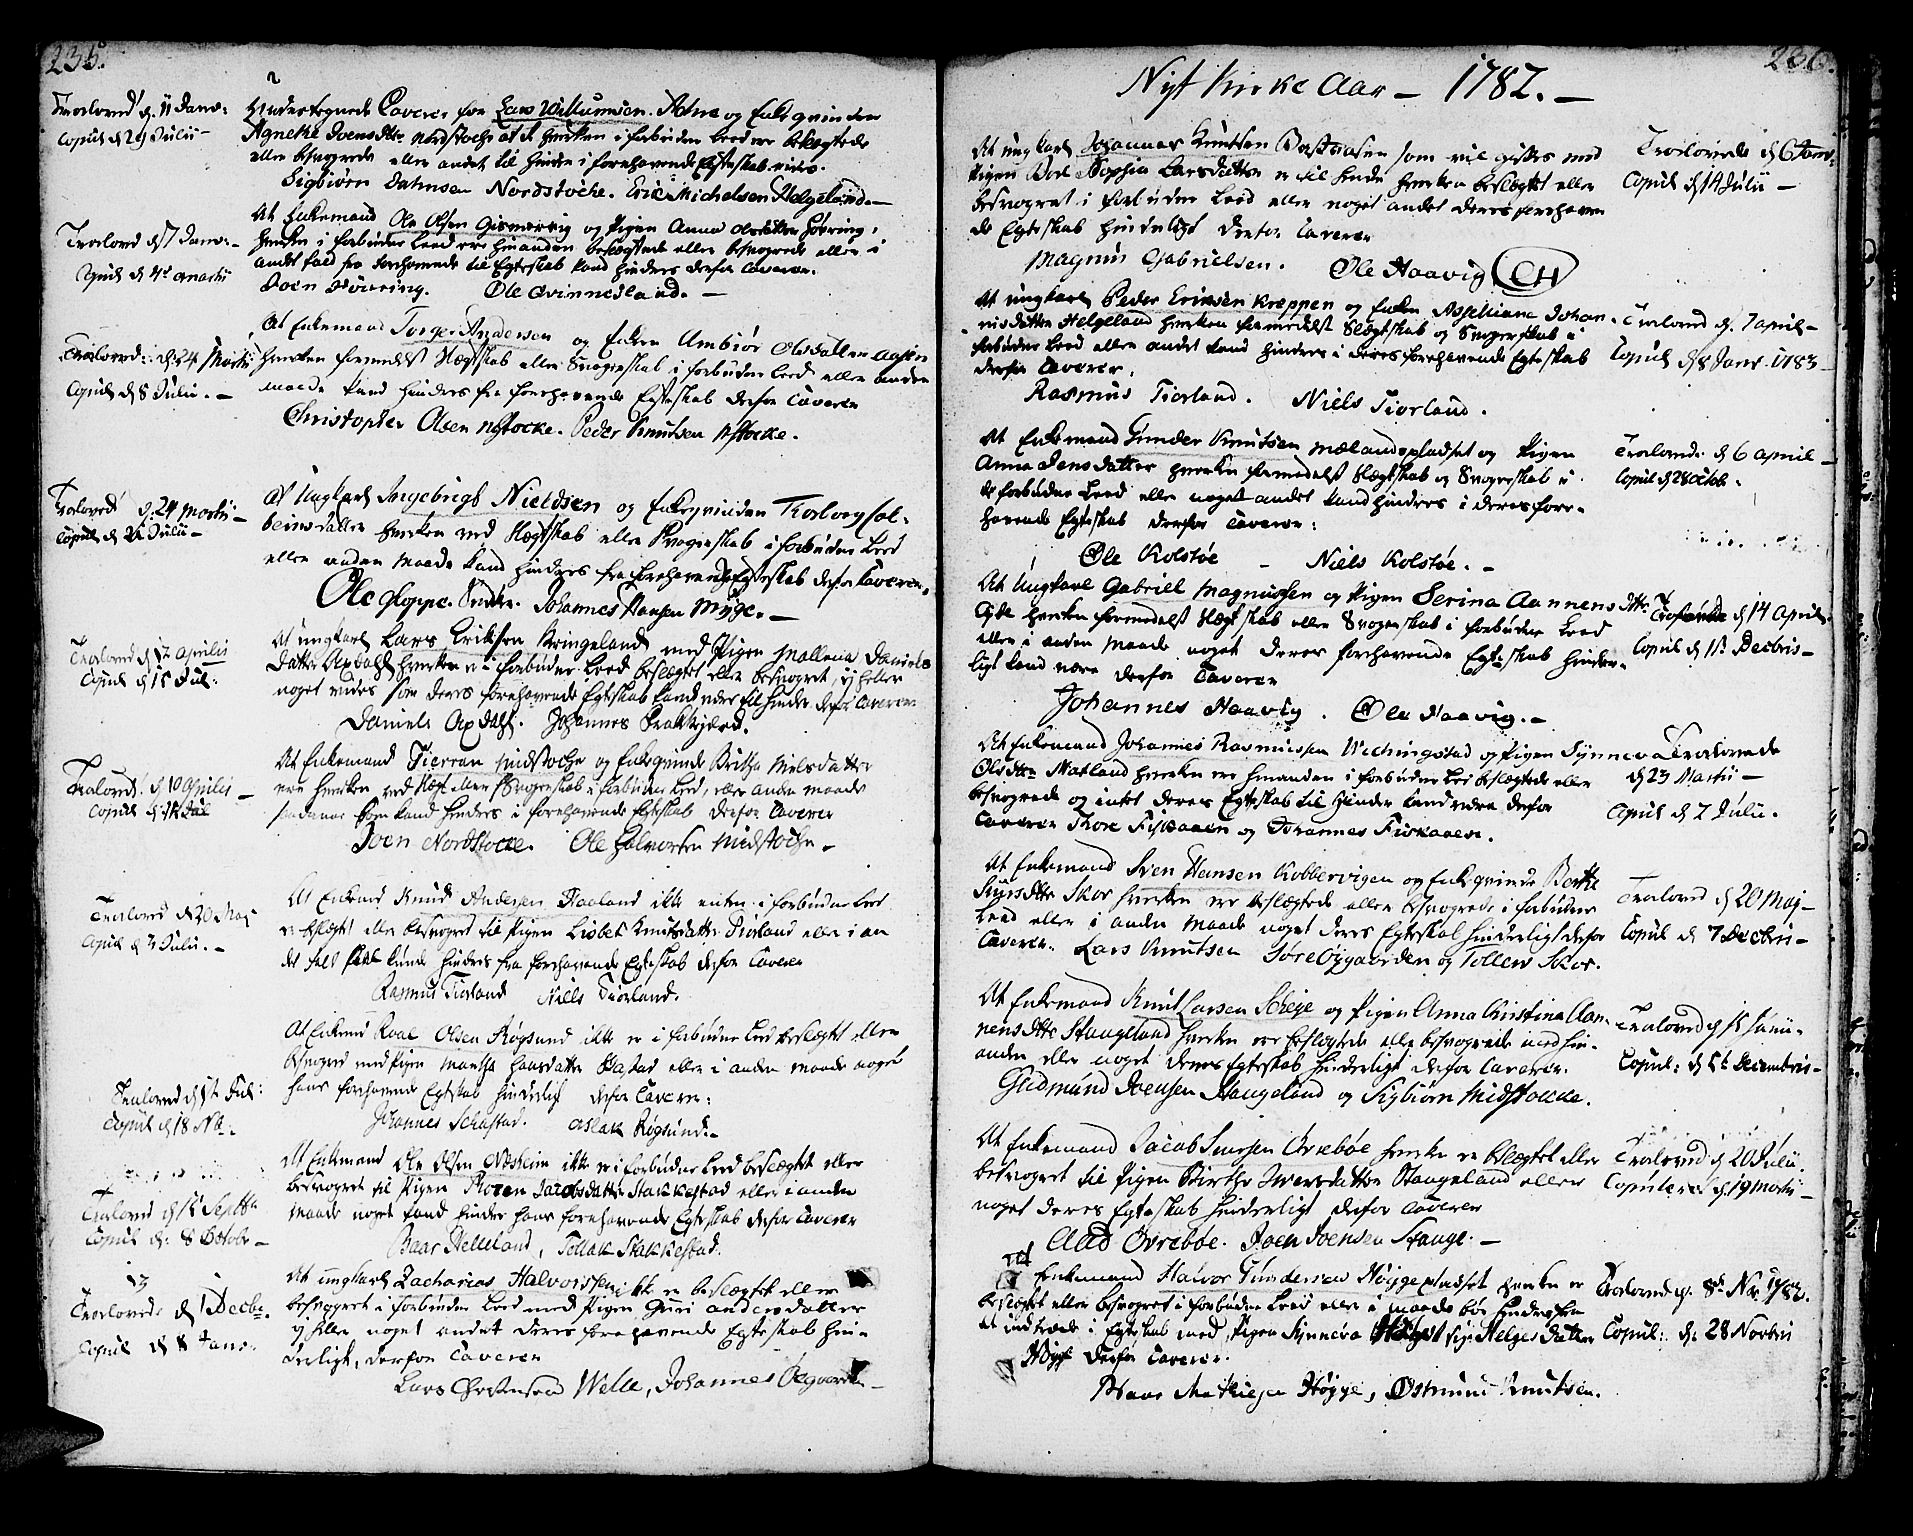 235.
Troloved d. 11 Janr:
Copul d 29 Julii –
Undertegnede Caverer for Lars Villumsen Adne og Enkeqvinden
Agneke Joensdttr Nordstoche at de hverken i forbuden Leed ere beslegtede
eller besvogrede eller andet til hinder i forehavende Egteskab vides.
Sigbiørn Nordstoche. Eric Michelsen Helgeland. –
Trolovd d. 7 Janr: –
Copul d 4de Martii
At Enkemand Ole Olsen Gismervig og Pigen Anna Olsdatter Høvring,
hverken i forbuden Leed ere hinanden beslegtede eller besvogrede eller i
andet fald fra forehavende til Egteskab kand hindres derfor Caverer.
Joen Høvring. Ole Qvinnesland. –
Troloved: d. 24 Martii
Copul d 8 Julii. –
At Enkemand Torger Andersen og Enken Anbiør Olsdatter
hverken formedelst Slegtskab eller Svogerskab i forbuden Leed eller anden
maade kand hindres fra forehavende Egteskab derfor Caverer
Christopher Olsen Nstocke. Peder Knutsen Nstocke.
Trolovd d. 24 Martii –
Copul d 22 Julii –
At Ungkarl Ingebrigt Nieldsen og Enkeqvinden Torborg Col-
beinsdatter hverken ved Slegtskab eller Svogerskab i forbuden Leed
eller anden maade kand hindres fra forehavende Egteskab derfor Caverer.
Ole Gloppe. Johannes Hansen Myge. –
Trolovd d 17 Aprilis
Copul d 15 Jul:
At ungkarl Lars Eriksen Kringeland med Pigen Mallena Daniels
datter Axdahl hverken er i forbuden Leed beslegtet eller besvogret, ej heller
noget vides som deres forehavende Egteskab kand være til hinder derfor Caverer
Daniel Axdahl. Johannes Brakkjærd.
Trolovd: d 10 Aprilis –
Copul d. Jul
At Enkemand Tierran Midstoche og Enkeqvinde Britha Nielsdatter
ere hverken ved Slegt eller Svogerskab i forbuden Leed, eller anden maade
saadanne som kand hindres i forehavende Egteskab derfor Caverer
Joen Nordstocke. Ole Halvorsen Midstoche –
Trolovd d 20 Maj
Copul d 3 Julii. –
At Enkemd Knud Andersen Haaland ikke enten i forbuden Leed
er beslegtet eller besvogret til Pigen Lisbet Knutsdatter Tiorland eller i an
det fald skal kunde hindres fra forehavende Egteskab derfor Caverer
Rasmus Tiorland Niels Tiorland.
Trolovd d 1te Jul:
Copul d 18 Nb:
At Enkemd Roal Olsen Røgsund ikke er i forbuden Leed beslegtet eller
besvogred med Pigen Martha Hansdatter eller i anden maade noget
hans forehavende Egteskab hinderligt derfor Caverer:
Johannes Schastad. Aslak Røgsund. –
Trolovd d 15 Septbr
Copul d: 8 Octobr –
At Enkemand Ole Olsen Næsheim ikke er i forbuden Leed beslegtet eller
besvogret til Pigen Karen Jacobsdatter Stakkestad eller i anden
maade noget kand hinder hans forehavende Egteskab derfor Caverer
Baar Helleland, Tollak Stakkestad.
13
Trolovede d 1 Decbr.
Copul d 8 Janr.
At ungkarl Zacharias Halvorssen ikke er beslegtet eller
besvogret i forbuden Leed med Pigen Guri Andersdatter
ej heller noget andet deres forehavende Egteskab hin-
derligt, derfor Caverer
Lars Christensen Welle, Johannes Øegaarden –
236.
Nyt Kirke Aar – 1782. –
At ungkarl Johannes Knutsen Bastiansen som vil giftes med
Pigen Borl Sophia Larsdatter er til hende hverken beslegtet eller
besvogret i forbuden Leed eller noget andet deres forehaven
de Egteskab hinderligt derfor Caverer
Magnus Gabrielsen. Ole Haavig CH
Trolovede d 6 Janr.
Copul d 14 Julii –
At ungkarl Peder Eriksen Kreppen og Enken Asseliana Johan-
nisdatter Helgeland hverken formedelst Slegtskab og Svogerskab i
forbuden Leed eller andet kand hindres i deres forehavende Egteskab
derfor Caverer.
Rasmus Tiorland. Niels Tiorland.
Trolovd d. 7 April –
Copul d 8 Janr. 1783 –
At Enkemand Gunder Knutsen Mælandspladset og Pigen
Anna Jensdatter hverken formedelst Slegtskab og Svogerskab i
de forbuden Leed eller noget andet kand hindres i deres fore-
havende Egteskab derfor Caverer:
Ole Kolstøe – Niels Kolstøe. –
Trolovd: d 6 April –
Copul d 28 Octob.
At Ungkarl Gabriel Magnussen og Pigen Serina Aannensdttr
hverken formedelst Slegtskab eller Svogerskab i forbuden Leed
eller i anden maade noget deres forehavende Egteskab hinder-
ligt kand være derfor Caverer
Johannes Haavig. Ole Haavig. –
Trolovede d 14 April
Copul d 11 Decbris –
At Enkemand Johannes Rasmussen Wichingstad og Pigen Synneva
Olsdttr Matland hverken ere hinanden i forbuden Leed beslegtede eller
besvogrede og intet deres Egteskab til Hinder kand være derfor
Caverer Thore Fiskaaen og Johannes Fiskaaen.
Trolovede
d 23 Martii –
Copul d 2 Julii.
At Enkemand Sven Hansen Kobbervigen og Enkeqvinde Berthe
Siursdttr Skor hverken ere beslegtede eller besvogrede i forbuden
Leed eller i anden maade noget deres Egteskab hinderligt derfor
Caverer. Lars Knutsen Søre Øygaarden og Tollew Skor.
Trolovd d 20 Maj –
Copul d 7 Decbris –
At Enkemand Knut Larsen Scheje og Pigen Anna Christina Aan-
nensdttr Stangeland hverken ere beslegtede eller besvogrede med hin-
anden eller noget deres Egteskab hinderligt derfor Caverer.
Gudmund Joensen Haugeland og Sigbiørn Midstocke.
Trolovd d 15 Junii –
Copul: d 5te Decembris –
At Enkemand Jacob Iversen Øvrebøe hverken er beslegtet eller
besvogret til Pigen Birthe Iversdatter Stangeland eller
noget deres Egteskab hinderligt derfor Caverer
Aad Øvrebøe. Joen Joensen Stange. –
Trolovd d 20 Julii.
Copuleret d. 19 Martii –
Enkemand Halvor Gundersen Høyge pladset hverken er
beslegtet eller besvogret i forbuden Leed eller i maade bør hindres hen
at indtræde i Egteskab med Pigen Synneva Helgesdatter
derfor Caverer.
Mathiesen Høyge, Osmund Knutsen.
Trolovd d. 8de Nov. 1782.
Copul: d. 28 Novbris